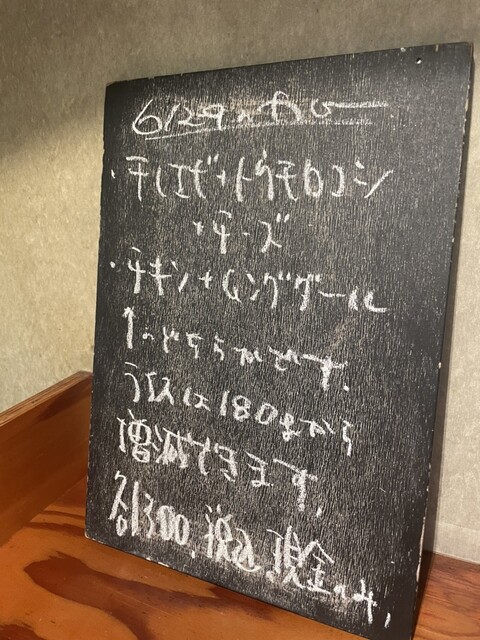 6/29のカレー
・干しエビ+トウモロコシ
+チーズ
・チキン+ムングダール
↑のどちらかです。
ライスは180gから
増減できます。
各1300,税込,現金のみ,